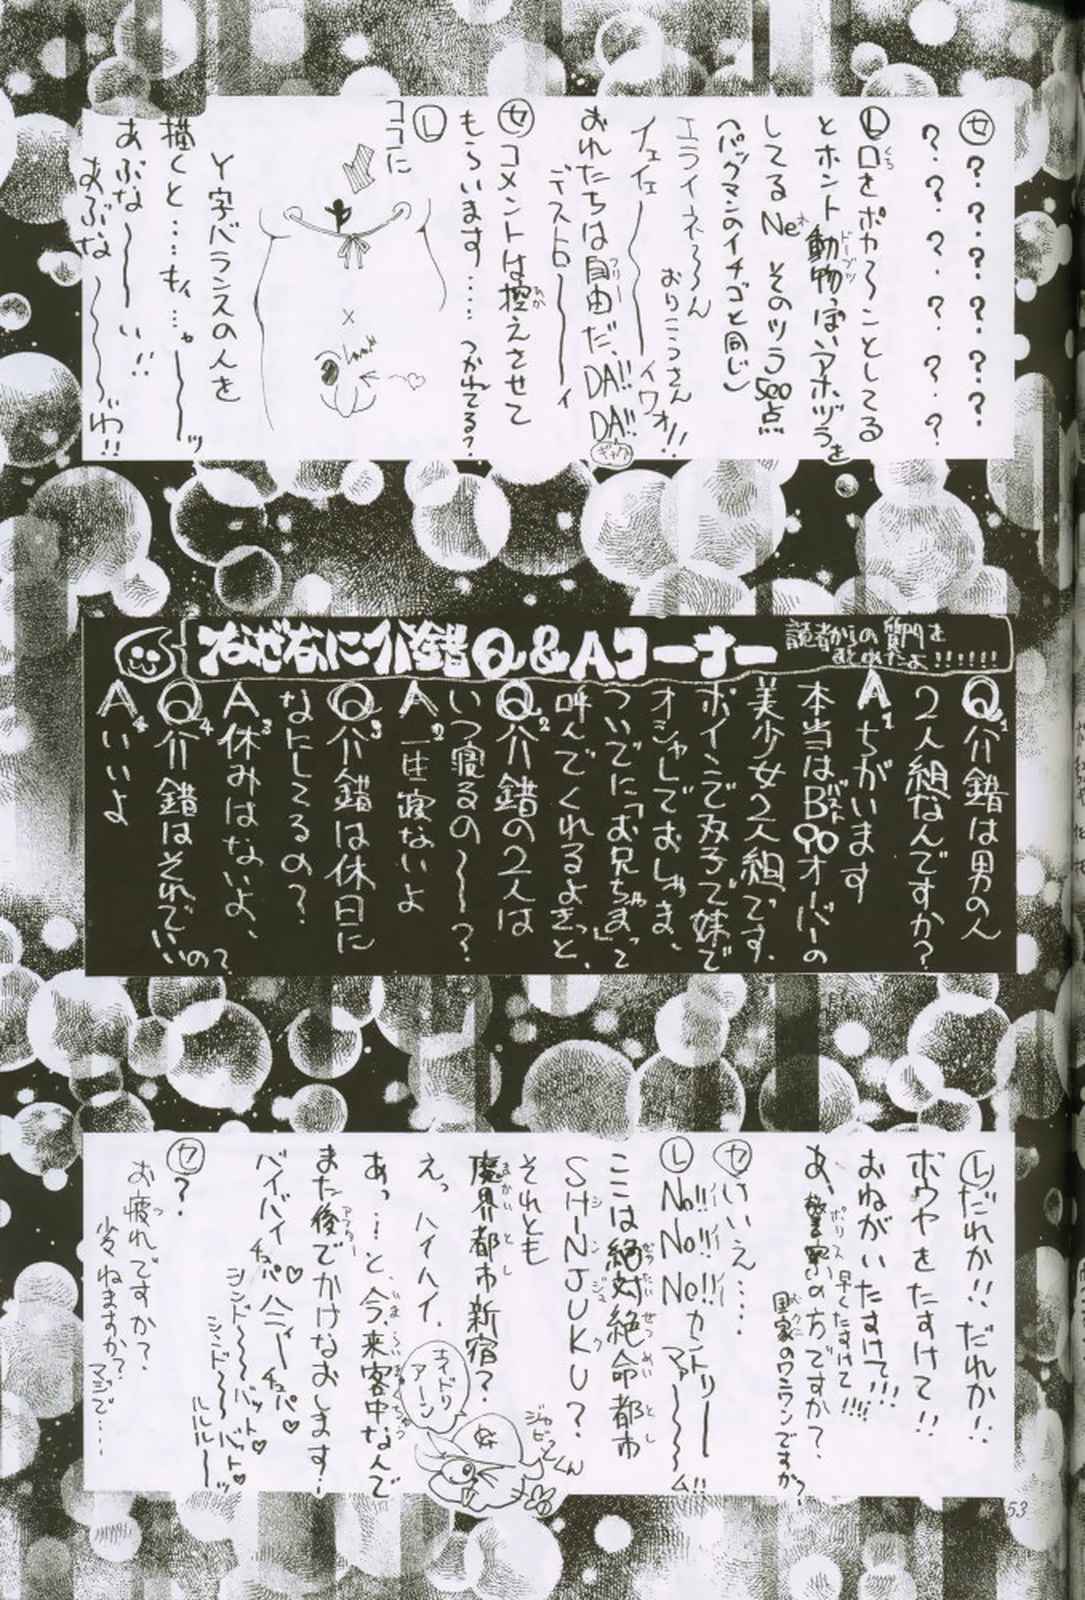 ㋝?.?.?.?.?.?.?
?.?.?.?.?.?
Ⓛ口をポカ〜ンとしてる
とホント動物っぽいアホヅラを
してるNe そのツラ500点
(パックマンのイチゴと同じ)
エライネ〜〜ん
おりこうさん
イェイェ〜〜〜イワォ!!
おれたちは自由だ、DA!! DA!!
ギャク
デストロ〜〜ィ
㋝コメントは控えさせて
もらいます……つかれてる?
Ⓛ
ココに
Y字バランスの人を
描くと…
あぶな〜〜い!!
あぶな〜〜〜いわ!!
なぜなに介錯Q&Aコーナー
読者からの質問を
まとめたよ!!!!!!
Q1介錯は男の人
2人組なんですか?
A1ちがいます
本当はB90オーバーの
美少女2人組です.
ボインで双子で妹で
オシャレでおしゃま、
ついでに「お兄ちゃま」って
呼んでくれるよきっと、
Q2介錯の2人は
いつ寝るの〜〜?
A2一生寝ないよ
Q3介錯は休日に
なにしてるの?
A3休みはないよ、
Q4介錯はそれでいいの?
A4いいよ
Ⓛだれか!!だれか!!
ボウヤをたすけて!!
おねがいたすけて!!!
早くたすけて!!!!
あ、警察の方ですか?
国家のワンワンですか?
㋝いいえ……
ⓁNo!! No!! Ne!!カントリー!!
ここは絶対絶命都市
SHINJUKU?
それとも
魔界都市新宿?
えっハイハイ、
あっ…と今、来客中なんで
また後でかけなおします.
バイバイチュパ♥ハニーチュパ♥
シンド〜〜バット♥
シンド〜〜バット♥
ルルル〜〜ッ
㋝?
お疲れですか?
少々ねますか?
マジで….
53